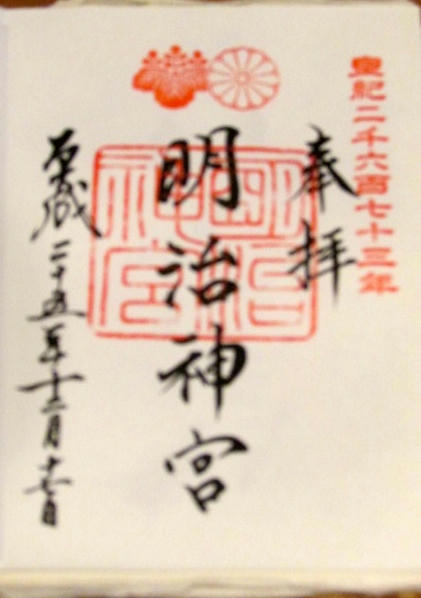 皇紀二千六百七十三年
奉拝
明治神宮
明治神宮
平成二十五年十二月十七日